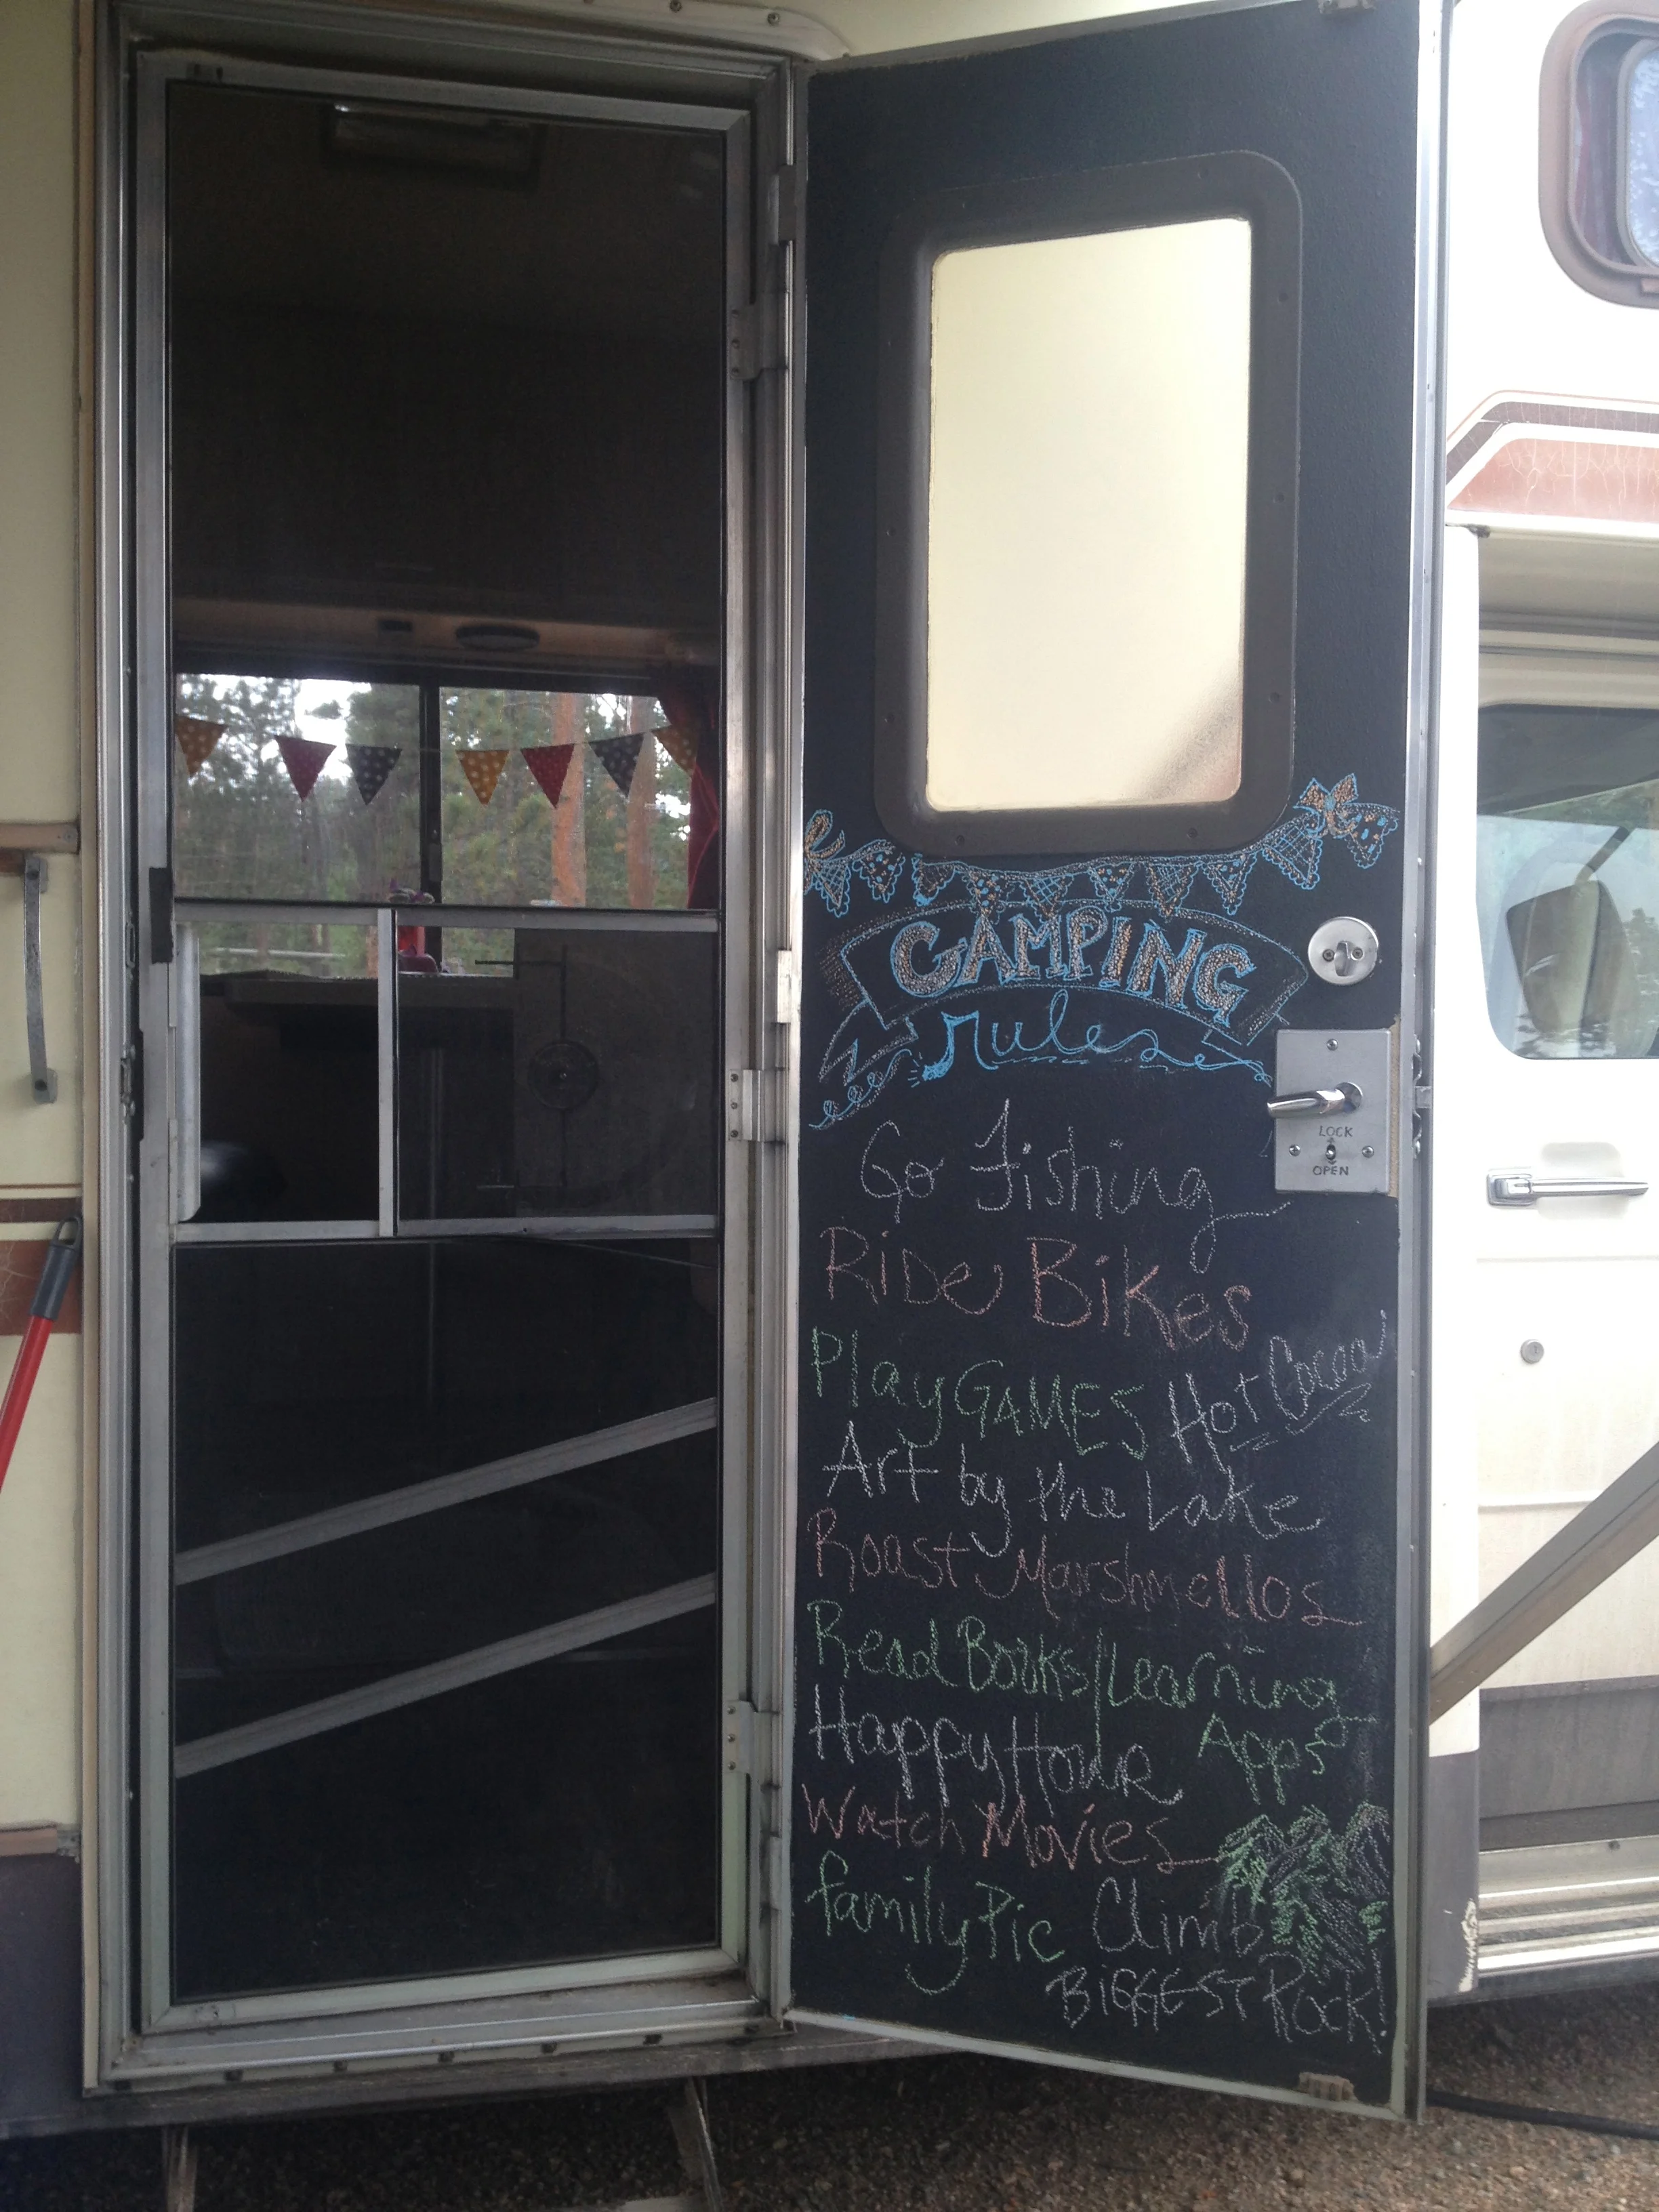 CAMPING
rules
LOCK
OPEN
Go Fishing
Ride Bikes
Play GAMES Hot Cocoa
Art by the Lake
Roast Marshmellos
Read Books/Learning
Apps
Happy Hour
Watch Movies
family Pic
Climb
BiGGEST Rock!